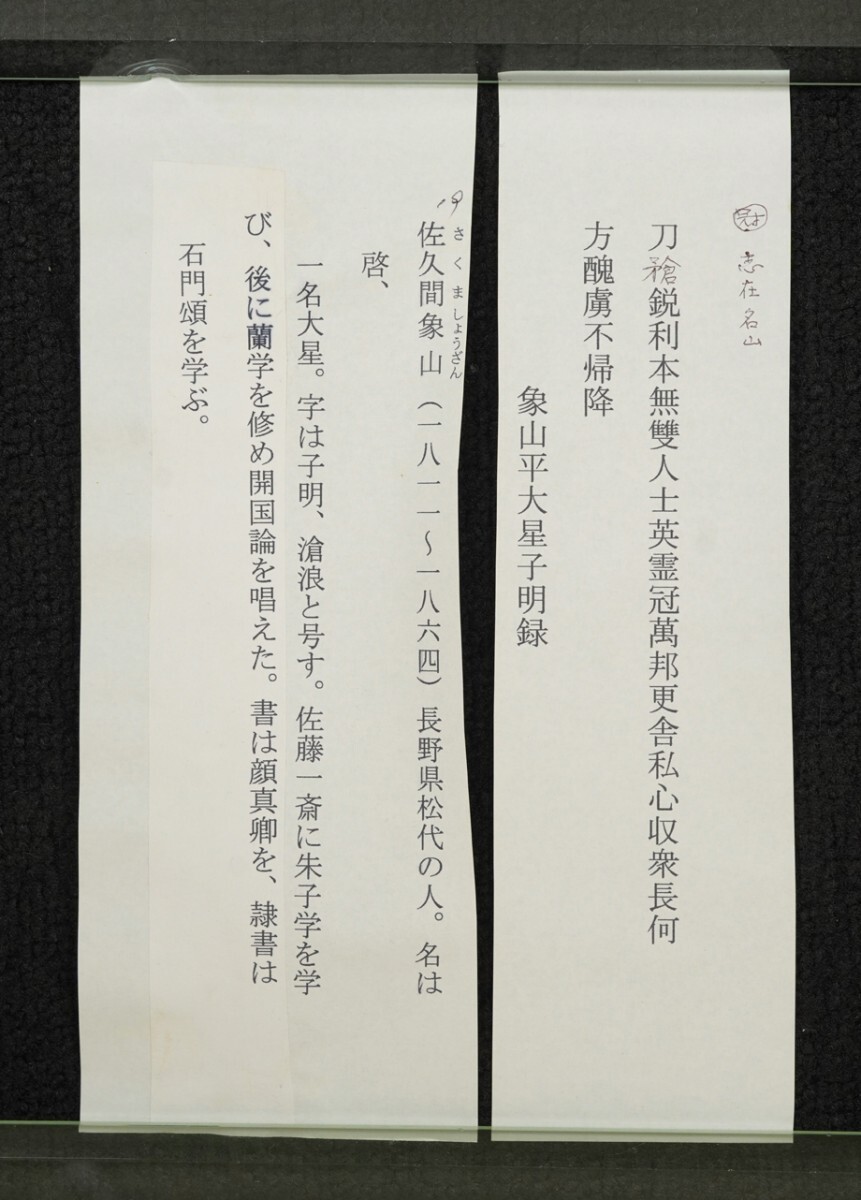 志在名山
刀槍鋭利本無雙人士英霊冠萬邦更舎私心収衆長何
方醜虜不帰降
象山平大星子明録
さくましょうざん
佐久間象山（一八一一〜一八六四）長野県松代の人。名は
啓、
一名大星。字は子明、滄浪と号す。佐藤一斎に朱子学を学
び、後に蘭学を修め開国論を唱えた。書は顔真卿を、隷書は
石門頌を学ぶ。